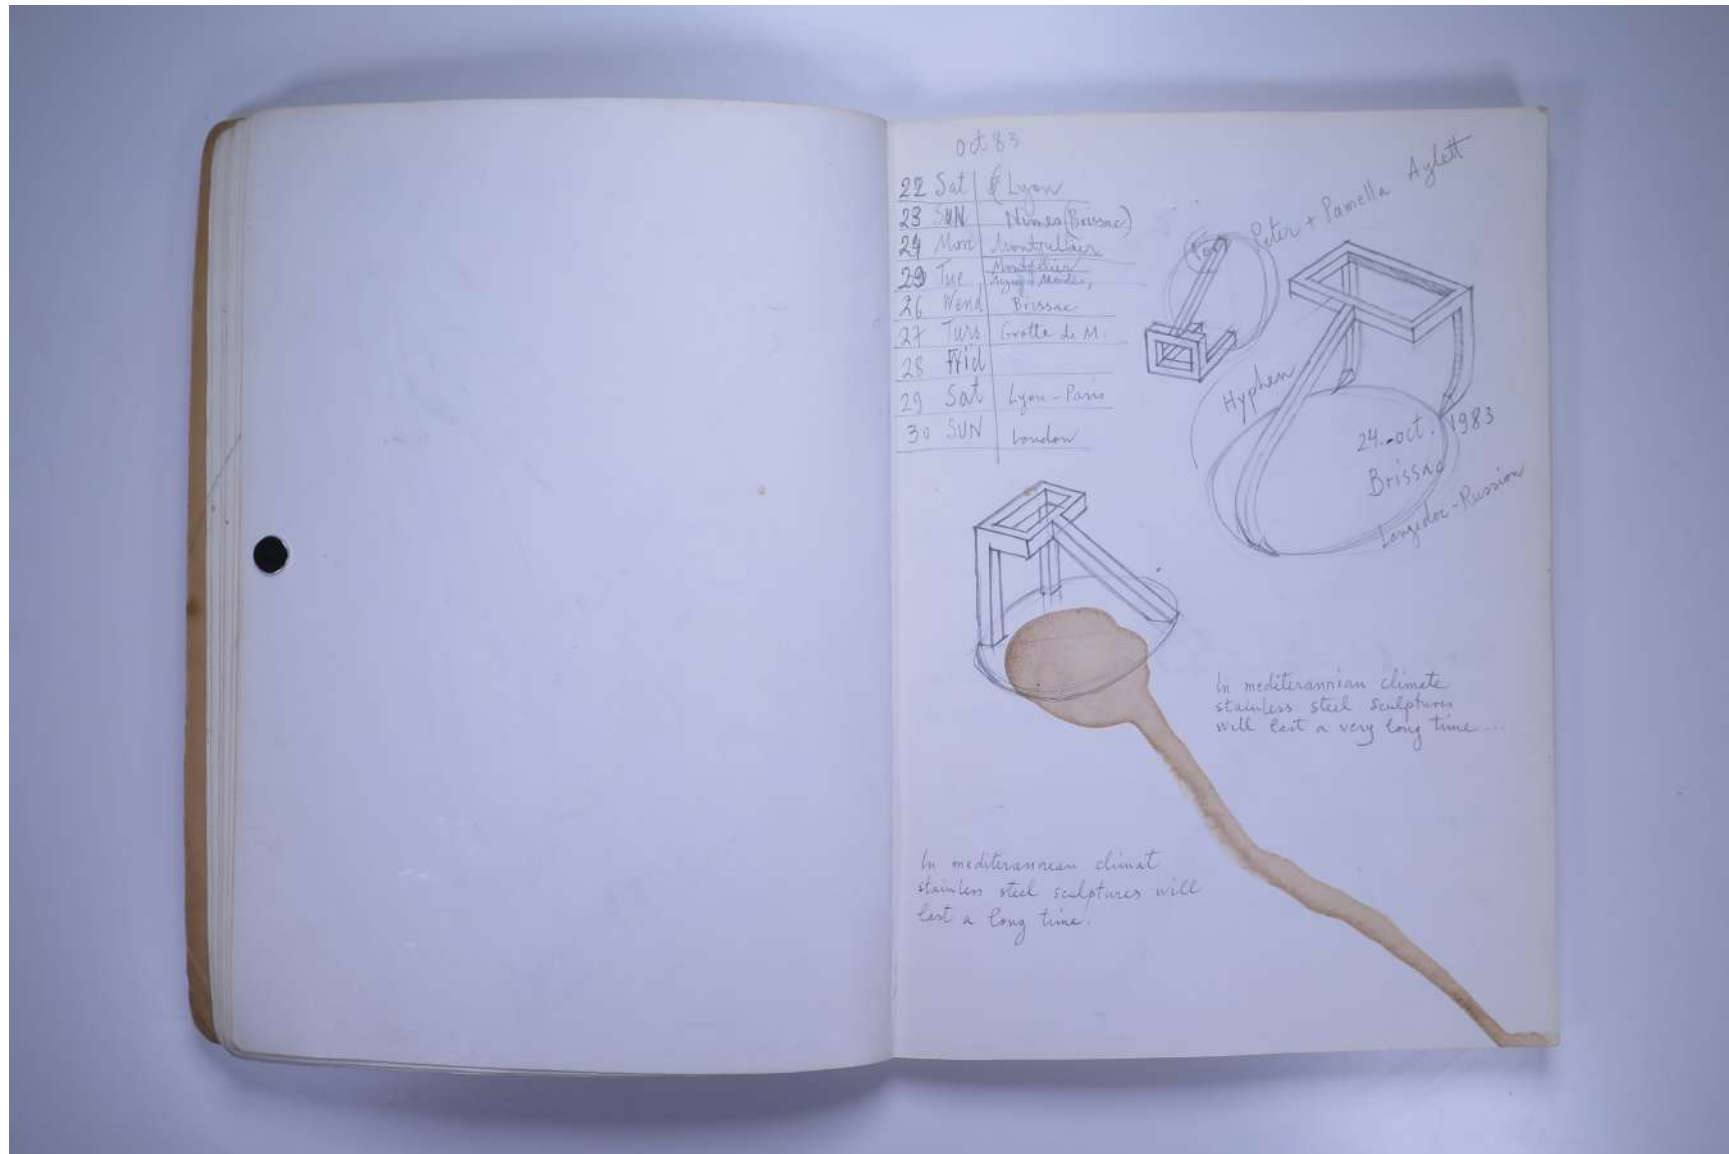 oct 83
22 Sat Lyon
23 SUN Nimes (Brissac)
24 Mon Montpellier
29 Tue Montpelier
26 Wend Brissac
27 Turs Grotte de M.
28 Frid
29 Sat Lyon - Paris
30 SUN London
For Peter + Pamella Aylett
Hyphen
24.-oct. 1983
Brissac
Langedoc-Russion
In mediterannian climate
stainless steel sculptures
will last a very long time...
In mediterannean climat
stainless steel sculptures will
last a long time.